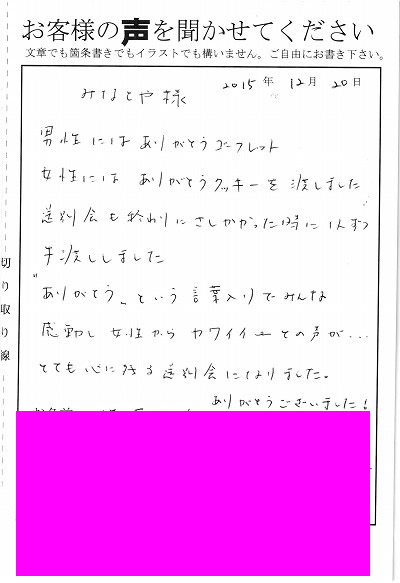 お客様の声を聞かせてください
文章でも箇条書きでもイラストでも構いません。ご自由にお書き下さい。
2015年 12月 20日
みなとや様
男性にはありがとうゴーフレット
女性には ありがとうクッキーを渡しました
送別会も終わりにさしかかった時に1人ずつ
手渡ししました
"ありがとう„という言葉入りでみんな
感動し女性からカワイイーとの声が...
とても心に残る送別会になりました。
ありがとうございました!
切り取り線